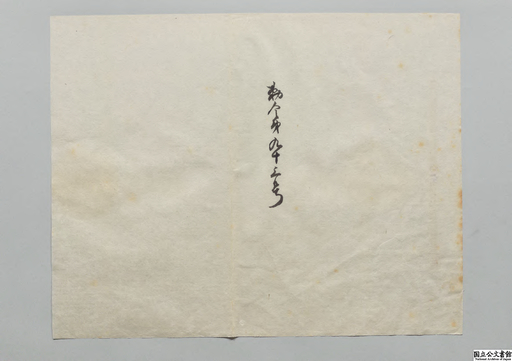 勅令第九十三号
国立公文書館
National Archives of Japan